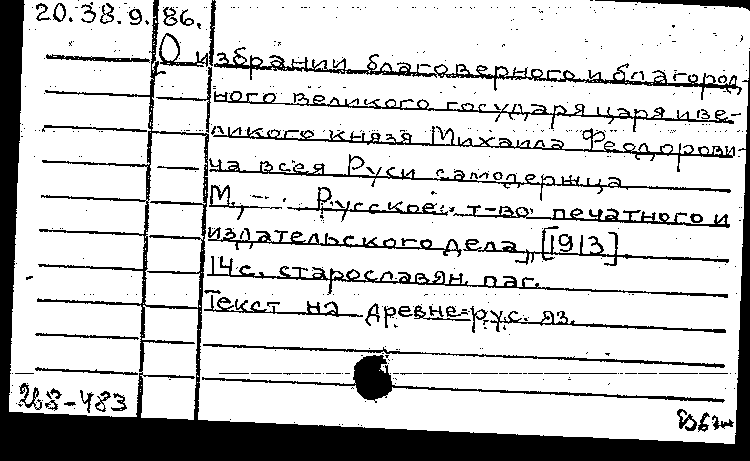 20.38.9.86.
О избрании благоверного и благород-
ного великого государя царя и ве-
ликого князя Михаила Феодорови-
ча всея Руси самодержца
М., "Русское т-во печатного и
издательского дела", [1913].
14 с. старославян. паг.
Текст на древне-рус. яз.
268-483